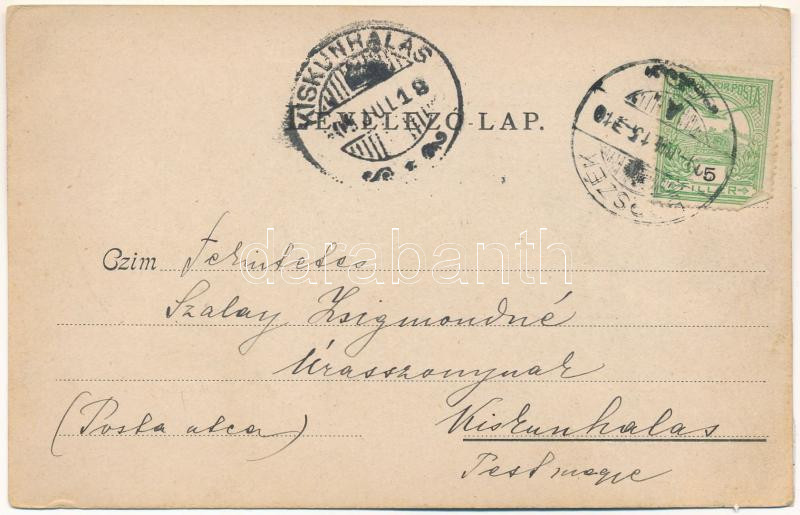 KISKUNHALAS
JUL 18
LEVELEZŐ-LAP.
POSTA
5
FILLÉR
Czim Tekintetes
Szalay Zsigmondné
Úrasszonynak
(Posta utca) Kiskunhalas
Pest megye
darabanth